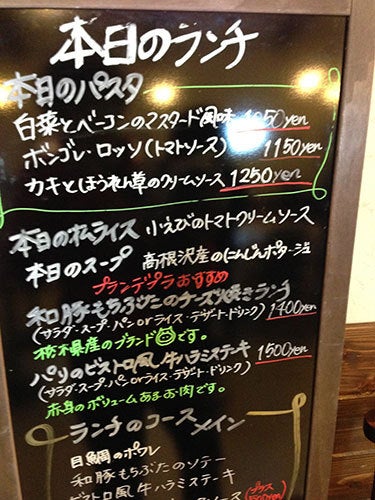 本日のランチ
本日のパスタ
白菜とベーコンのマスタード風味 1050yen
ボンゴレ・ロッソ(トマトソース) 1150yen
カキとほうれん草のクリームソース 1250yen
本日のオムライス 小えびのトマトクリームソース
本日のスープ 高根沢産のにんじんポタージュ
プランデプラおすすめ
和豚もちぶたのチーズ焼きランチ 1400yen
(サラダ・スープ・パンorライス・デザート・ドリンク)
栃木県産のブランドです。
パリのビストロ風 牛ハラミステーキ 1500yen
(サラダ・スープ・パンorライス・デザート・ドリンク)
赤身のボリュームあるお肉です。
ランチのコース
メイン
目鯛のポワレ
和豚もちぶたのソテー
ビストロ風牛ハラミステーキ
プラス